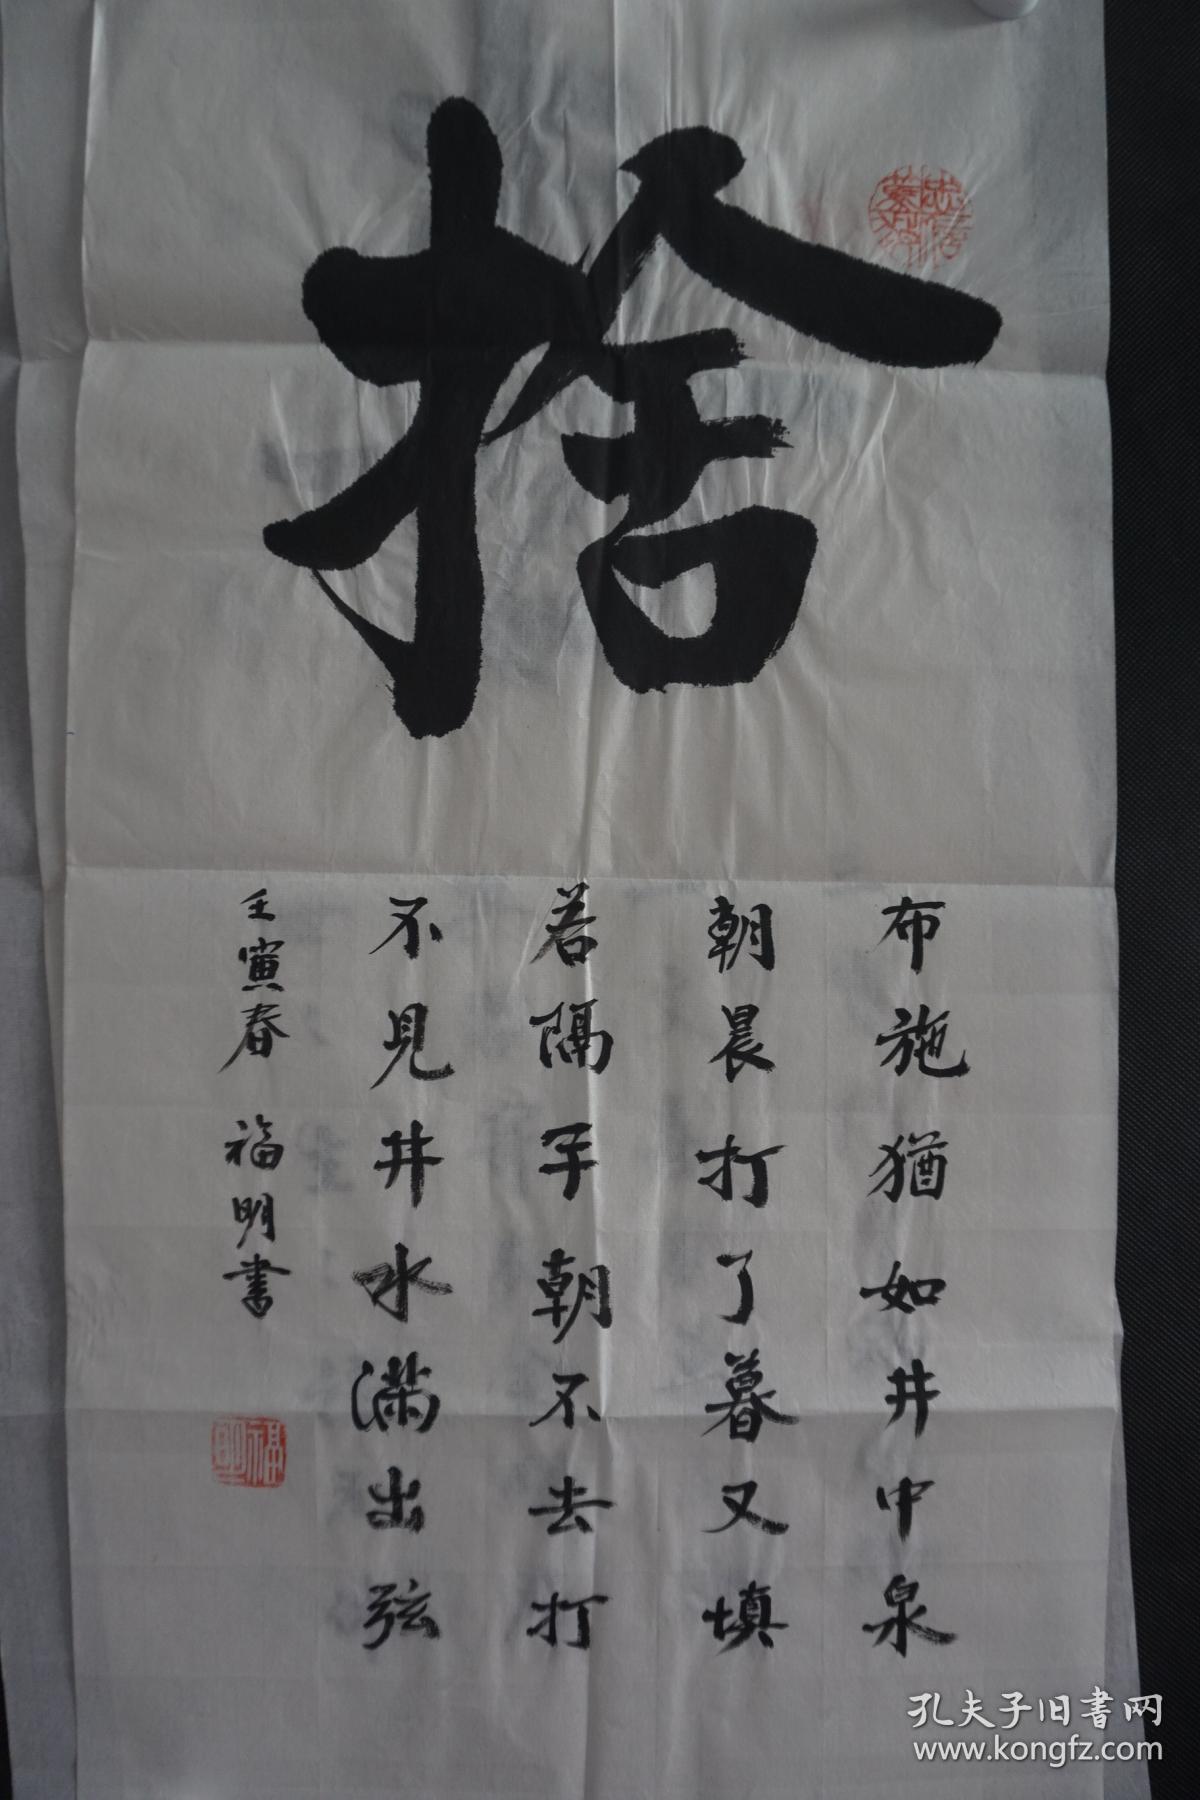 捨
布施猶如井中泉
朝晨打了暮又填
若隔手朝不去打
不見井水滿出弦
壬寅春 福明書
福明
孔夫子旧书网
www.kongfz.com